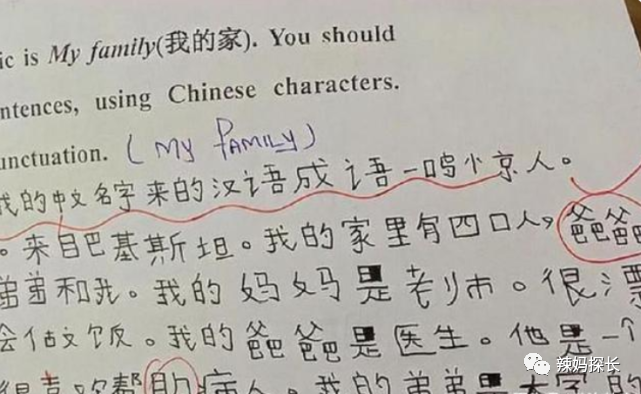 ic is My family(我的家). You should
ntences, using Chinese characters.
unctuation. (MY FAMILY)
我的中文名字来的汉语成语一鸣小京人。
。来自巴基斯坦。我的家里有四口人,爸爸
弟弟和我。我的妈妈是老师。很漂
会做饭。我的爸爸是医生。他是一个
很喜欢帮助病人。我的弟弟是大学的
辣妈探长